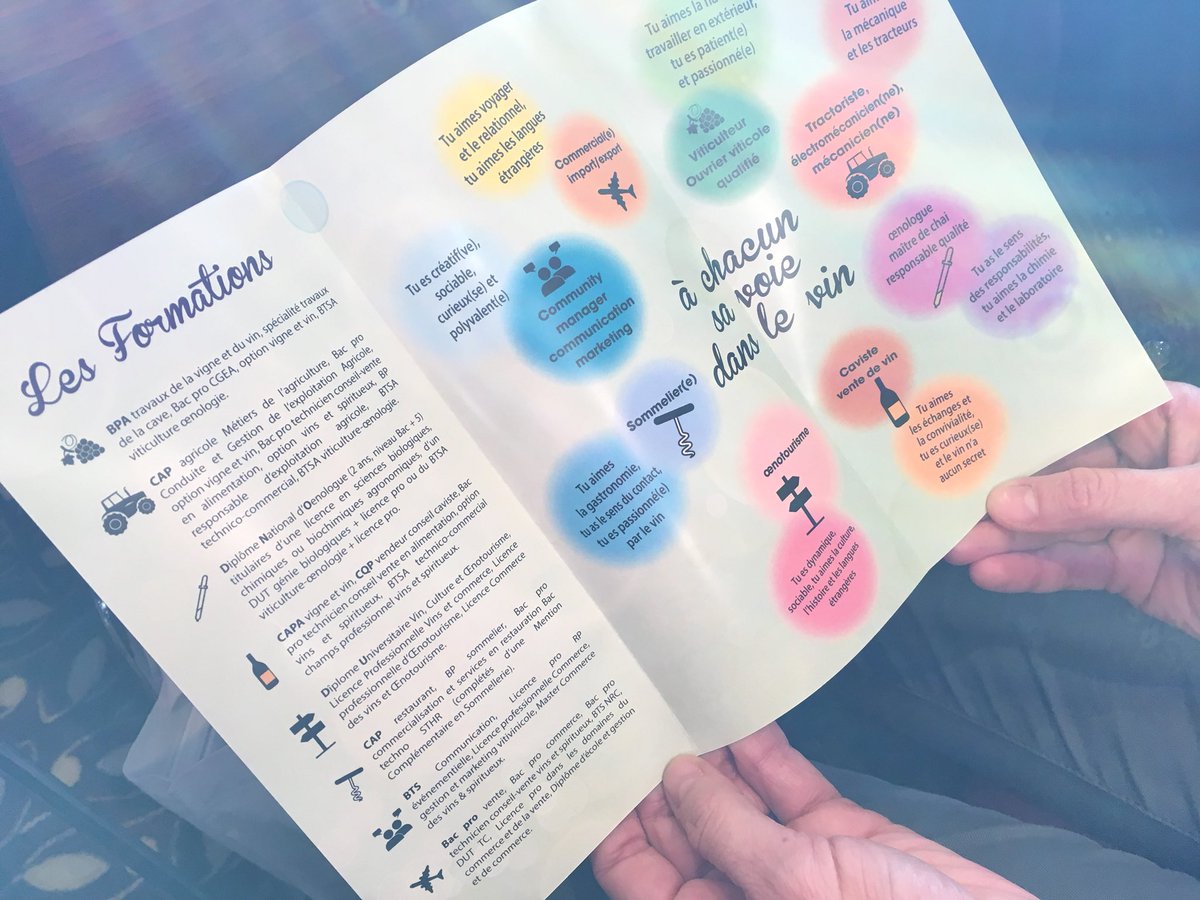 Les Formations
BPA travaux de la vigne et du vin, spécialité travaux
de la cave, Bac pro CGEA, option vigne et vin, BTSA
viticulture œnologie.
CAP agricole Métiers de l'agriculture, Bac pro
Conduite et Gestion de l'exploitation Agricole,
option vigne et vin, Bac pro technicien conseil-vente
en alimentation, option vins et spiritueux, BP
responsable d'exploitation agricole. BTSA
technico-commercial, BTSA viticulture-œnologie.
Diplôme National d'Oenologue (2 ans, niveau Bac + 5)
titulaires d'une licence en sciences biologiques,
chimiques ou biochimiques agronomiques, d'un
DUT génie biologiques + licence pro ou du BTSA
viticulture-œnologie + licence pro.
CAPA vigne et vin, CQP vendeur conseil caviste, Bac
pro technicien conseil vente en alimentation, option
vins et spiritueux, BTSA technico-commercial
champs professionnel vins et spiritueux.
Diplome Universitaire Vin, Culture et Œnotourisme,
Licence Professionnelle Vins et commerce, Licence
professionnelle d'Œnotourisme, Licence Commerce
des vins et Œnotourisme.
CAP restaurant, BP sommelier, Bac pro
commercialisation et services en restauration Bac
techno STHR (complétés d'une Mention
Complémentaire en Sommellerie).
BTS Communication, Licence pro RP
événementielle, Licence professionnelle Commerce,
gestion et marketing vitivinicole, Master Commerce
des vins & spiritueux.
Bac pro vente, Bac pro commerce, Bac pro
technicien conseil-vente vins et spiritueux, BTS NRC,
DUT TC, Licence pro dans les domaines du
commerce et de la vente, Diplôme d'école et gestion
et de commerce.
Tu aimes voyager
et le relationnel,
tu aimes les langues
étrangères
Commercial(e)
import/export
Tu es créatif(ve),
sociable,
curieux(se) et
polyvalent(e)
Community
manager
communication
marketing
Sommelier(e)
Tu aimes
la gastronomie,
tu as le sens du contact,
tu es passionné(e)
par le vin
Tu aimes la
travailler en extérieur,
tu es patient(e)
et passionné(e)
Viticulteur
Ouvrier viticole
qualifié
à chacun
sa voie
dans le vin
œnotourisme
Tu es dynamique,
sociable, tu aimes la culture,
l'histoire et les langues
étrangères
Tu aimes
la mécanique
et les tracteurs
Tractoriste,
électromécanicien(ne),
mécanicien(ne)
œnologue
maître de chai
responsable qualité
Tu as le sens
des responsabilités,
tu aimes la chimie
et le laboratoire
Caviste
vente de vin
Tu aimes
les échanges et
la convivialité,
tu es curieux(se)
et le vin n'a
aucun secret